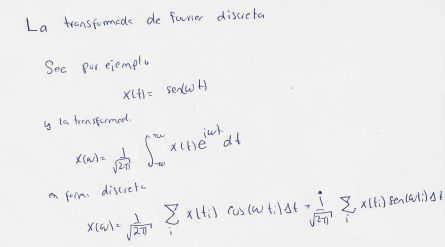 La transformada de fourier discreta
Sea por ejemplo
x(t) = sen(ωt)
y la transformad.
x(ω) = 1/√2π ∫_{-∞}^{+∞} x(t) e^{iωt} dt
en forma discreta
x(ω) = 1/√2π Σ_i x(ti) cos(ωti)Δt + i/√2π Σ_i x(ti) sen(ωti)Δt